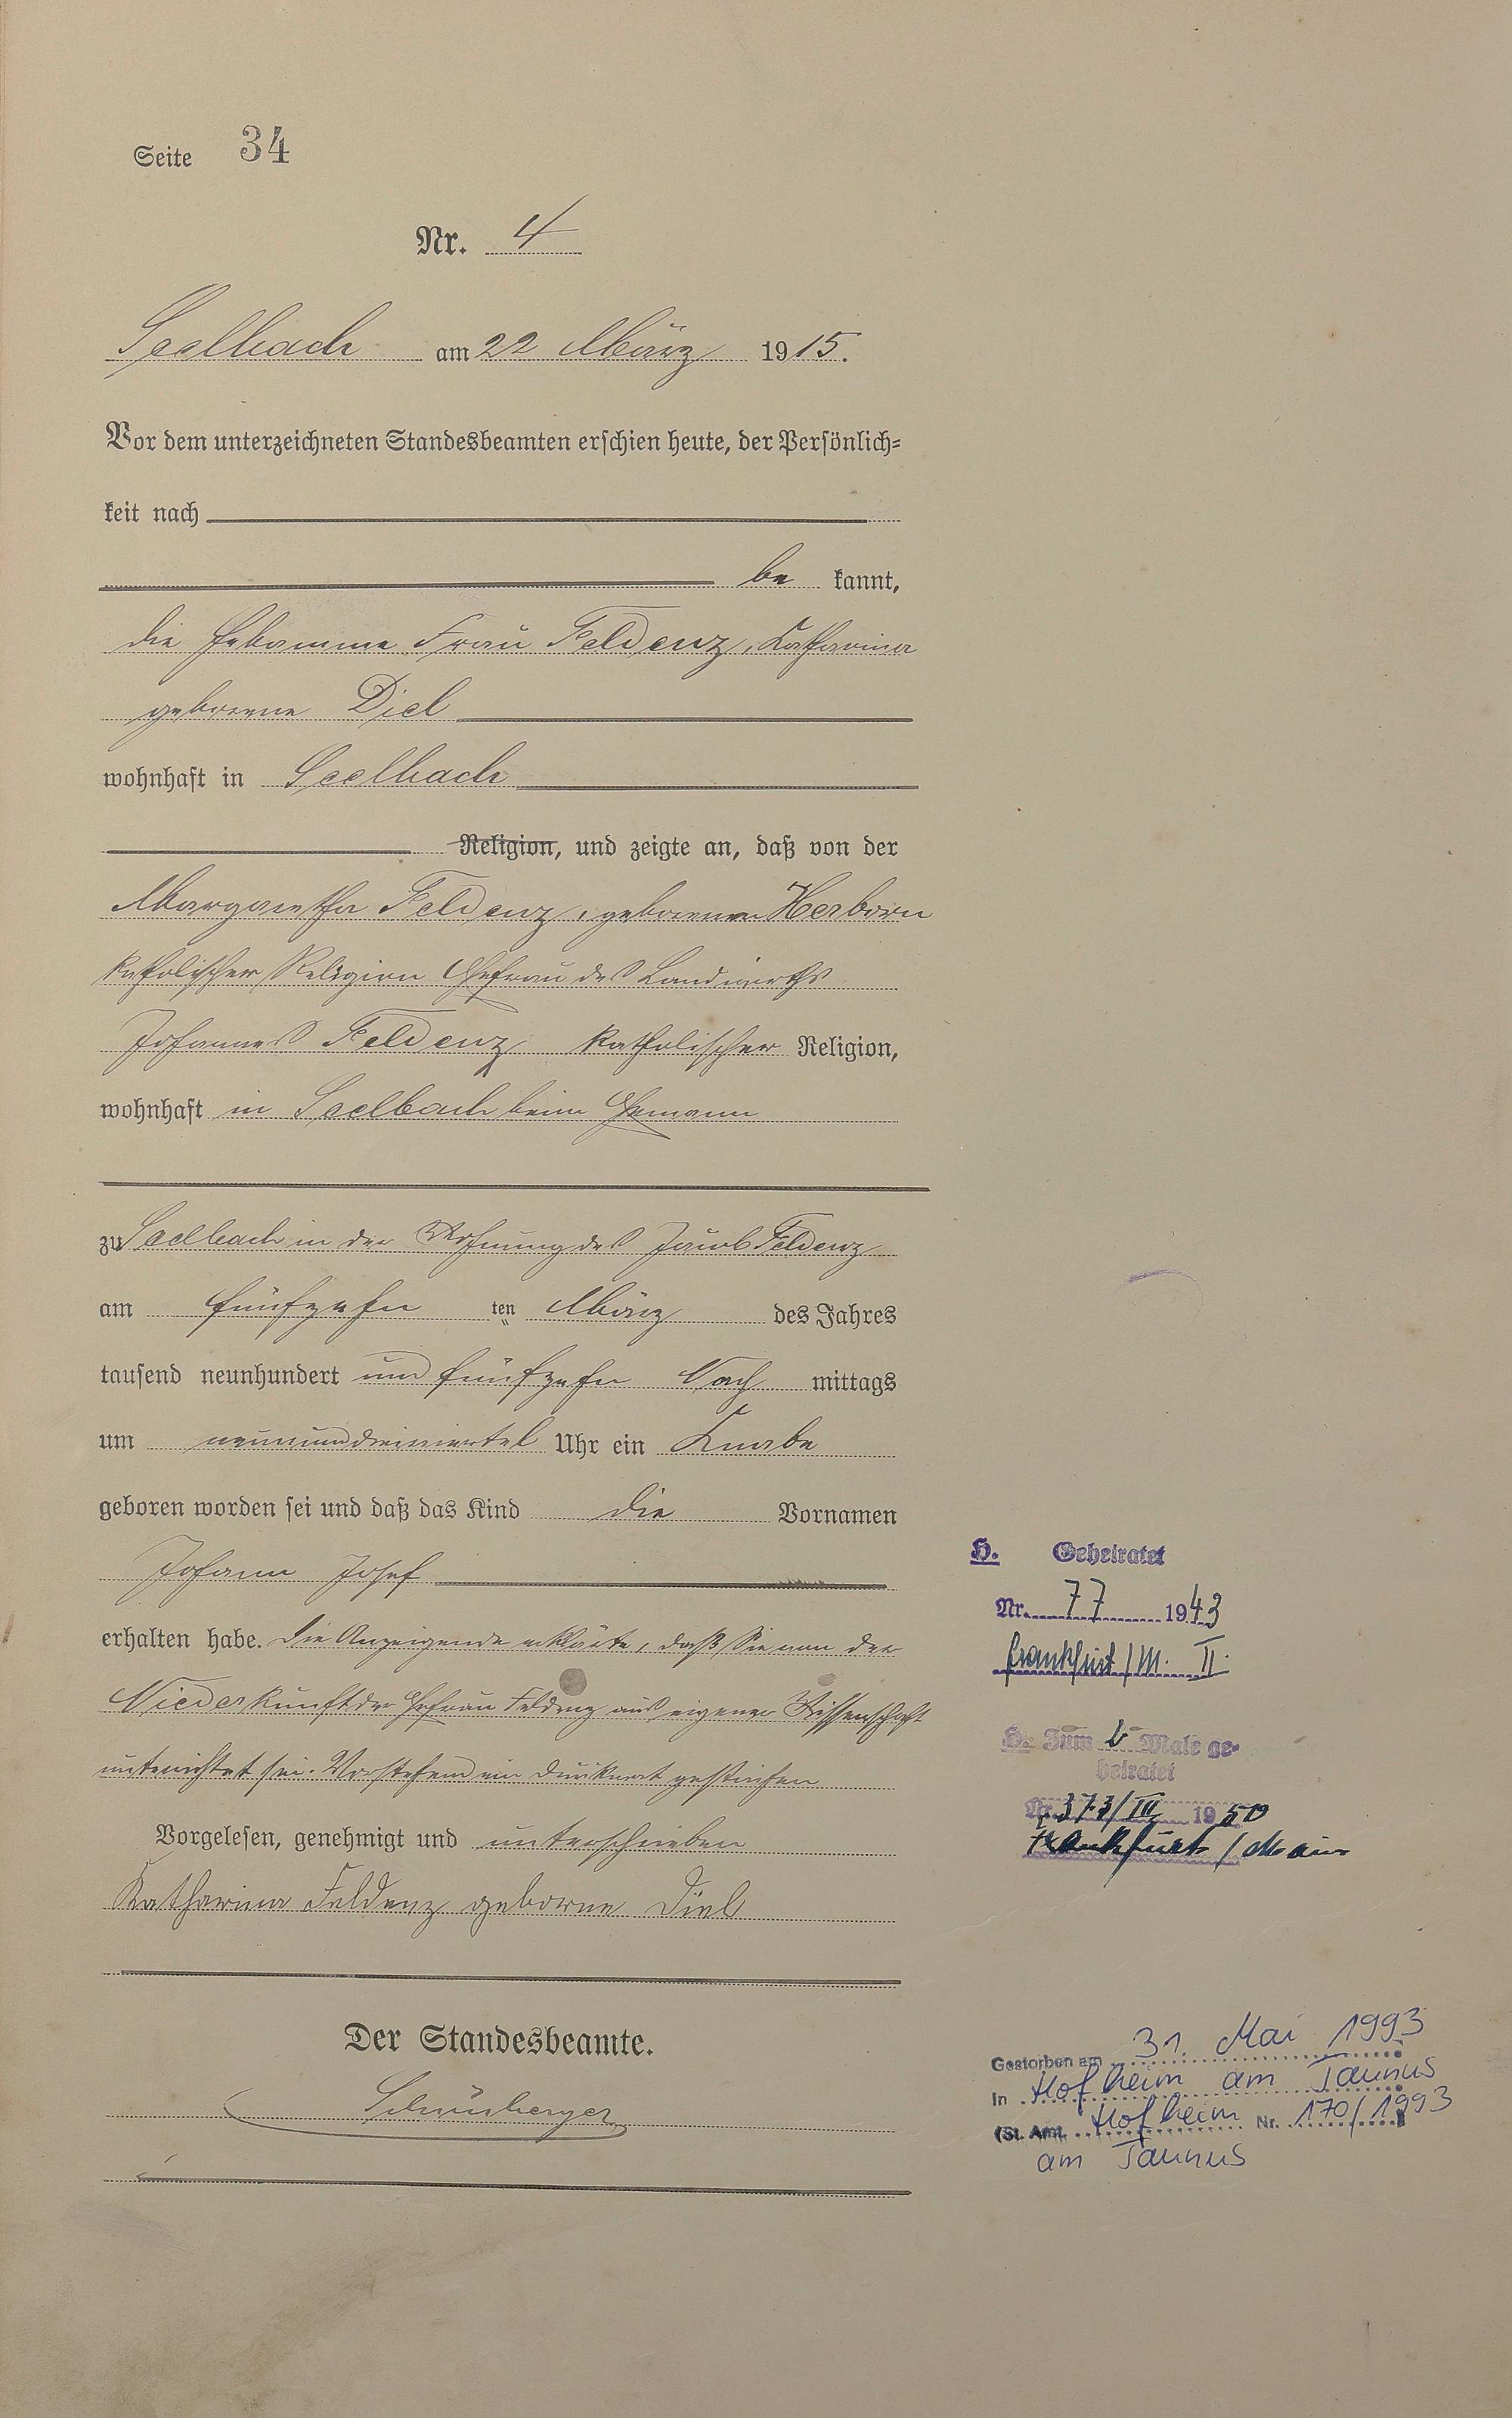 Seite 34
Nr. 4
Seelbach am 22 März 1915.
Vor dem unterzeichneten Standesbeamten erschien heute, der Persönlich=
keit nach
be kannt,
die Hebamme Frau Feldenz, Katharina
geborene Diel
wohnhaft in Seelbach
Religion, und zeigte an, daß von der
Margaretha Feldenz, geborenen Herborn
katholischer Religion Ehefrau des Landwirths
Johannes Feldenz katholischer Religion,
wohnhaft in Seelbach beim Ehemann
zu Seelbach in der Wohnung des Jacob Feldenz
am fünfzehn ten März des Jahres
tausend neunhundert und fünfzehn Nach mittags
um neununddreiviertel Uhr ein Knabe
geboren worden sei und daß das Kind die Vornamen
Johann Josef
erhalten habe. Die Anzeigende erklärte, daß Sie von der
Niederkunft der Ehefrau Feldenz aus eigener Wissenschaft
unterrichtet sei. Vorstehend ein Druckwort gestrichen
Vorgelesen, genehmigt und unterschrieben
Katharina Feldenz geborne Diel
Der Standesbeamte.
H. Geheiratet
Nr. 77 1943
Frankfurt/M. II.
H. Zum Male ge-
heiratet
Nr. 373/III 1950
Frankfurt / Main
Gestorben am 31. Mai 1993
in Hofheim am Taunus
(St. Amt. Hofheim Nr. 170/1993
am Taunus